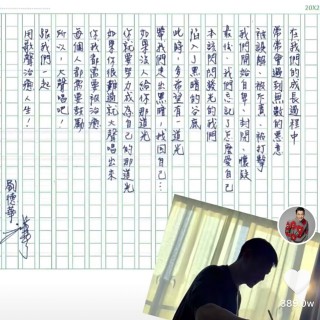 在我們的成長過程中
常常會遇到無數的惡意
被誤解、被欺負、被打擊
我們開始自卑、封閉、懷疑
最後，我們忘記了怎麼愛自己
本該閃閃發光的我們
陷入了黑暗的谷底
此時，多希望有一道光
帶我們走出黑暗，找回自己…
如果沒人給你那道光
你就要努力成為自己的那道光
如果你很難過就大聲唱出來
你我都需要被治癒
每個人都需要鼓勵
所以，大聲唱吧！
跟我們一起
用歌聲治癒人生！
劉德華
20X2